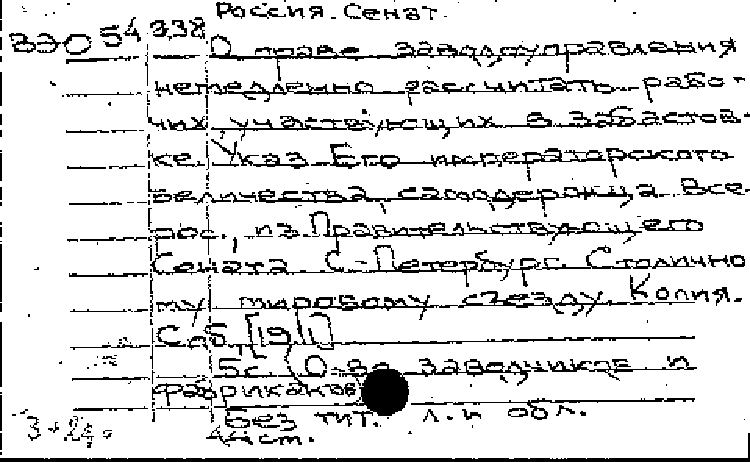 Россия. Сенат.
ВЭО 54 938
О праве заводоуправления
немедленно рассчитать рабо-
чих, участвующих в забастов-
ке. Указ Его императорского
величества, самодержца Все-
рос., из Правительствующего
Сената С-Петербург. Столично
му мировому съезду. Копия.
Спб. [1911]
О-во заводчиков и
фабрикантов
Без тит. л. и обл.
4 ст.